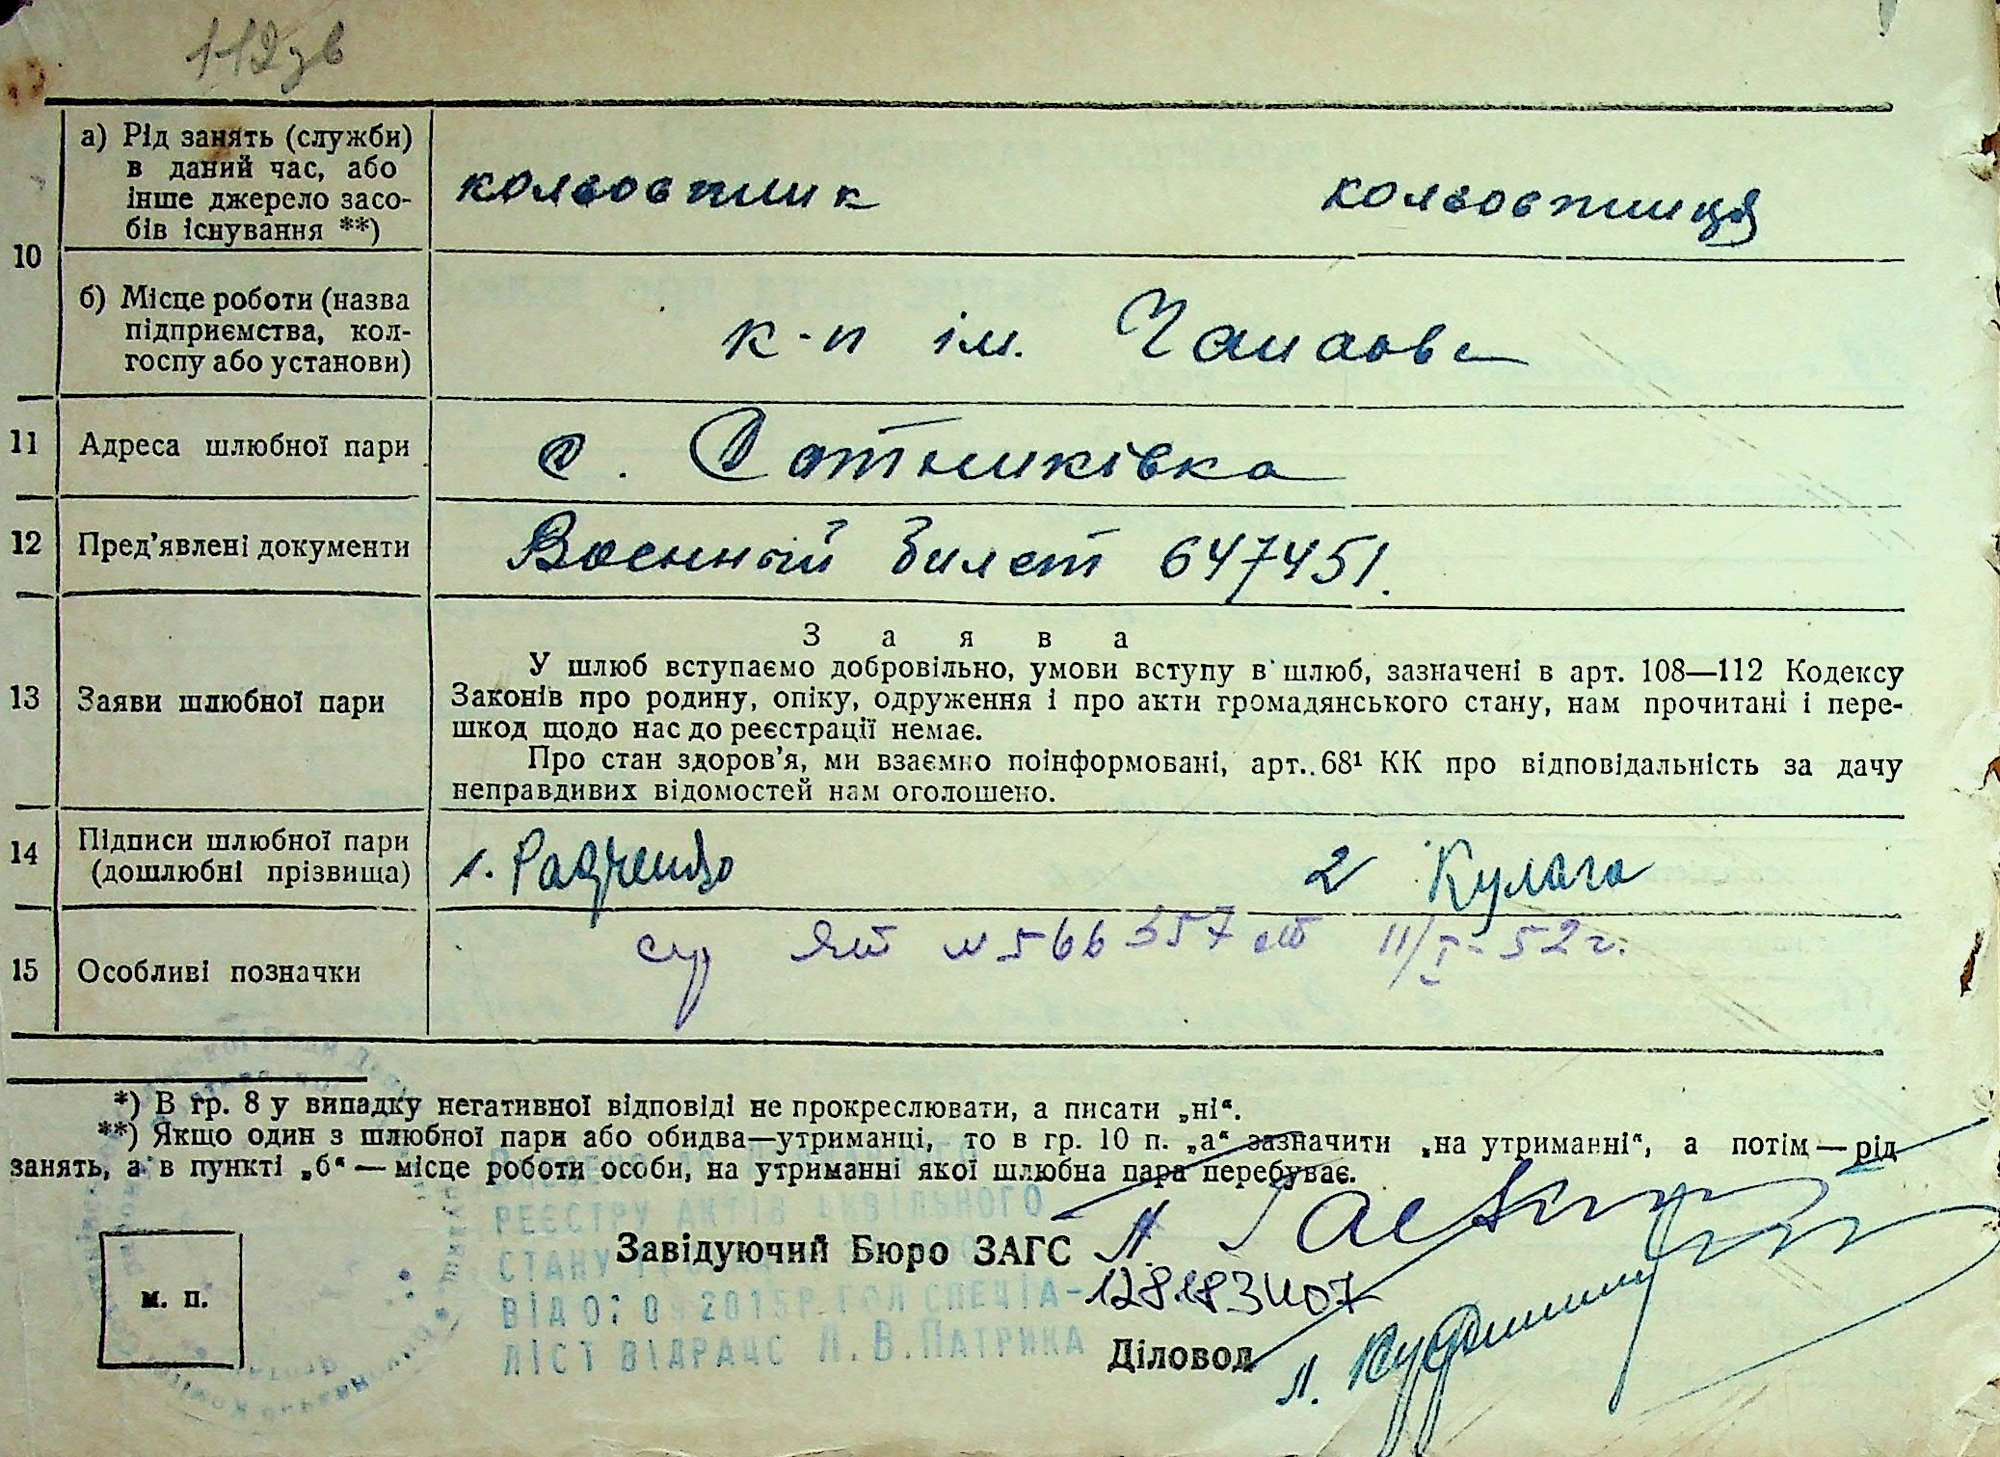 112 зв
10
а) Рід занять (служби)
в даний час, або
інше джерело засо-
бів існування **)
колгоспник колгоспниця
б) Місце роботи (назва
підприємства, кол-
госпу або установи)
к-п ім. Чапаєва
11 Адреса шлюбної пари с. Сотниківка
12 Пред'явлені документи Военный билет 647451.
13 Заяви шлюбної пари
Заява
У шлюб вступаємо добровільно, умови вступу в шлюб, зазначені в арт. 108—112 Кодексу
Законів про родину, опіку, одруження і про акти громадянського стану, нам прочитані і пере-
шкод щодо нас до реєстрації немає.
Про стан здоров'я, ми взаємно поінформовані, арт. 68¹ КК про відповідальність за дачу
неправдивих відомостей нам оголошено.
14 Підписи шлюбної пари
(дошлюбні прізвища)
1. Радченко 2 Кулага
15 Особливі позначки
ЯЮ № 566357 от 11/I-52 г.
*) В гр. 8 у випадку негативної відповіді не прокреслювати, а писати „ні“.
**) Якщо один з шлюбної пари або обидва—утриманці, то в гр. 10 п. „а“ зазначити „на утриманні“, а потім—рід
занять, а в пункті „б“—місце роботи особи, на утриманні якої шлюбна пара перебуває.
РЕЄСТРУ АКТІВ ЦИВІЛЬНОГО
СТАНУ
Завідуючий Бюро ЗАГС
ВІД 2015Р. ГОЛ СПЕЦІА-
ЛІСТ ВІДРАЦС Л.В.ПАТРИКА
м. п.
Діловод